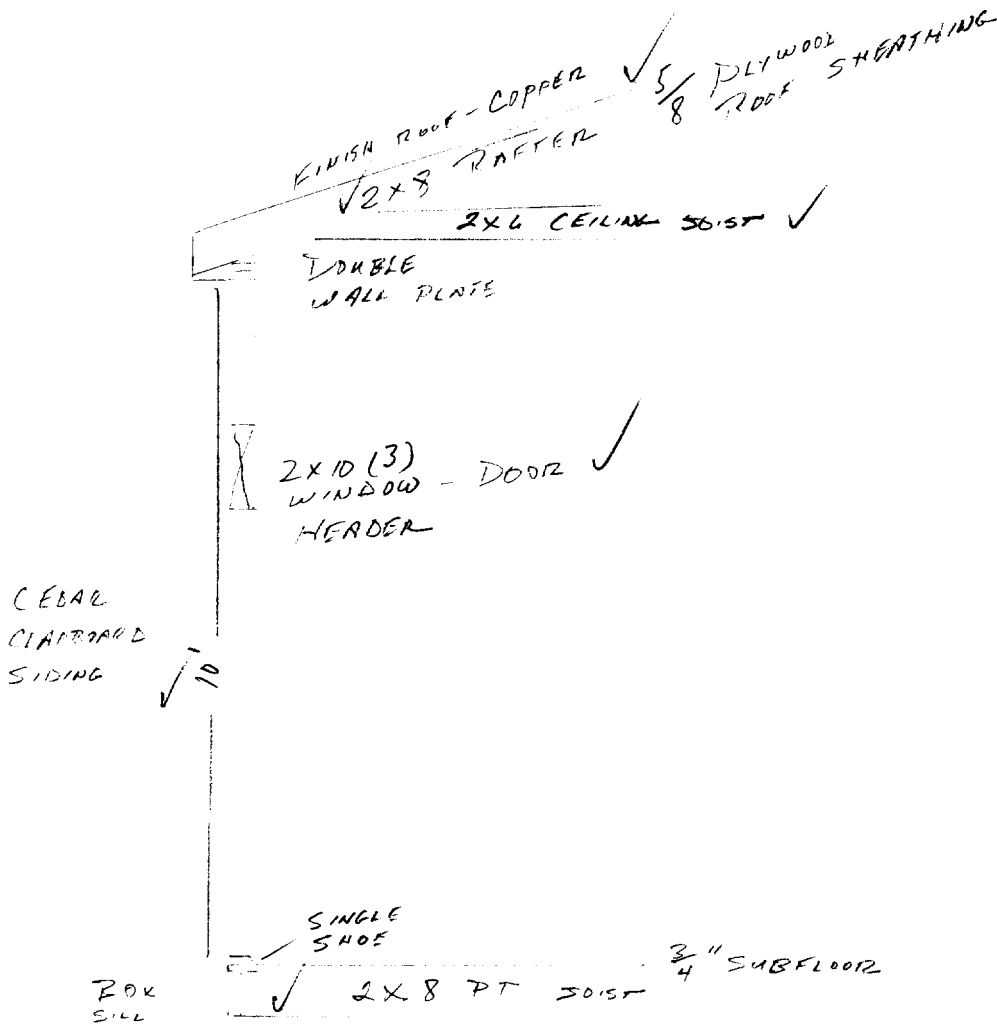 FINISH ROOF - COPPER ✓
5/8 PLYWOOD
ROOF SHEATHING
✓ 2x8 RAFTER
2x6 CEILING JOIST ✓
DOUBLE
WALL PLATE
2x10 (3)
WINDOW - DOOR ✓
HEADER
CEDAR
CLAPBOARD
SIDING
✓ 10'
SINGLE
SHOE
3/4" SUBFLOOR
BOX
SILL
✓ 2x8 PT JOIST